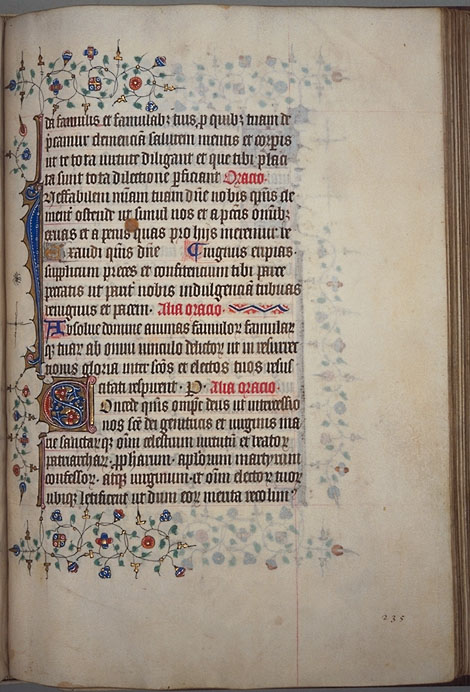 da famulis et famulabꝫ tuis, ꝓ quibꝫ tuam de
p̄camur clemenciā salutem mentis et corpis
ut te tota uirtute diligant et que tibi placi
ta sunt tota dilectione ꝑficiant Oracio.
Ineffabilem miam tuam dn̄e nobis qūs cle
menť ostende ut simul nos et a pctis omībꝫ
exuas et a penis quas pro hijs meremur te
Exaudi qūs dn̄e Eingnius eripias.
supplicum preces et confitencium tibi parce
peccatis ut parit̄ nobis indulgenciā tribuas
benignus et pacem. Alia oracio.
Absolue domine animas famulor famular
qꝫ tuar ab omni uinculo delictor ut in resurrec
tionis gloria inter sc̄os et electos tuos resus
citati respirent. P. Alia oracio.
Concede qūs omp̄c deus ut intercessio
nos sc̄e dei genitricis et uirginis ma
rie sanctarqꝫ oīm celestium uirtutū et beator
patriarchar. ꝓphetarum. apl̄orum martyrum
confessor. atqꝫ uirginum. et oīm elector tuor
ubiqꝫ letificent ut dum eor merita recolim⁹
235